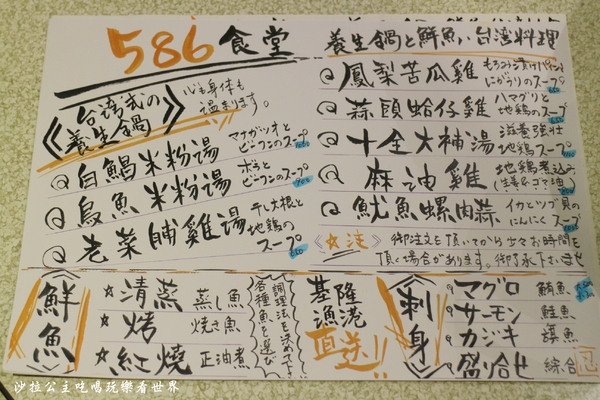 586食堂
養生鍋と鮮魚い台湾料理
《台湾式の養生鍋》
心も身体も
温まります。
白鯧米粉湯 マナガツオと
ビーフンのスープ
烏魚米粉湯 ボラと
ビーフンのスープ
老菜脯雞湯 干し大根と
地鶏の
スープ
鳳梨苦瓜雞 もろみ漬けパインと
にがうりのスープ
蒜頭蛤仔雞 ハマグリと
地鶏のスープ
十全大補湯 滋養強壮
地鶏スープ
麻油雞 地鶏煮込み
(生姜&ゴマ油)
魷魚螺肉蒜 イカとツブ貝の
にんにくスープ
《☆注》御注文を頂いてから少々お時間を
頂く場合があります。御了承下さいませ
《鮮魚》
☆清蒸 蒸し魚
☆烤 焼き魚
☆紅燒 正油煮
各種魚を選び
調理法を決めて下さい
基隆
漁港
直送!!
《刺身》
マグロ 鮪魚
サーモン 鮭魚
カジキ 旗魚
盛り合せ 綜合
沙拉公主吃喝玩樂看世界